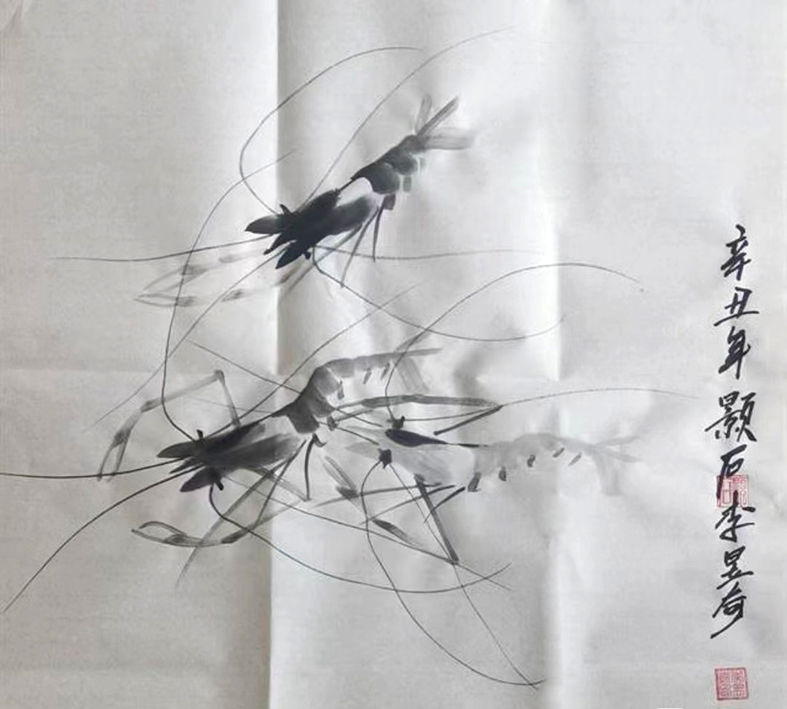 辛丑年颢石李昱奇